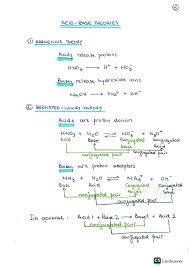 ACID-BASE THEORIES
① ARRHENIUS THEORY
Acids release protons
HNO₃ → H⁺ + NO₃⁻
Bases release hydroxide ions
NaOH → Na⁺ + OH⁻
② BRØNSTED-LOWRY THEORY
Acids are proton donors
HNO₃ + H₂O ⇌ NO₃⁻ + H₃O⁺
Acid Base Conjugated Conjugated
base acid
conjugated pair
conjugated pair
Bases are proton acceptors
NH₃ + H₂O ⇌ NH₄⁺ + OH⁻
Base Acid Conjugated Conjugated
acid base
conjugated pair
conjugated pair
In general: Acid 1 + Base 2 → Base 1 + Acid 2
conjugated pair
conjugated pair
CamScanner